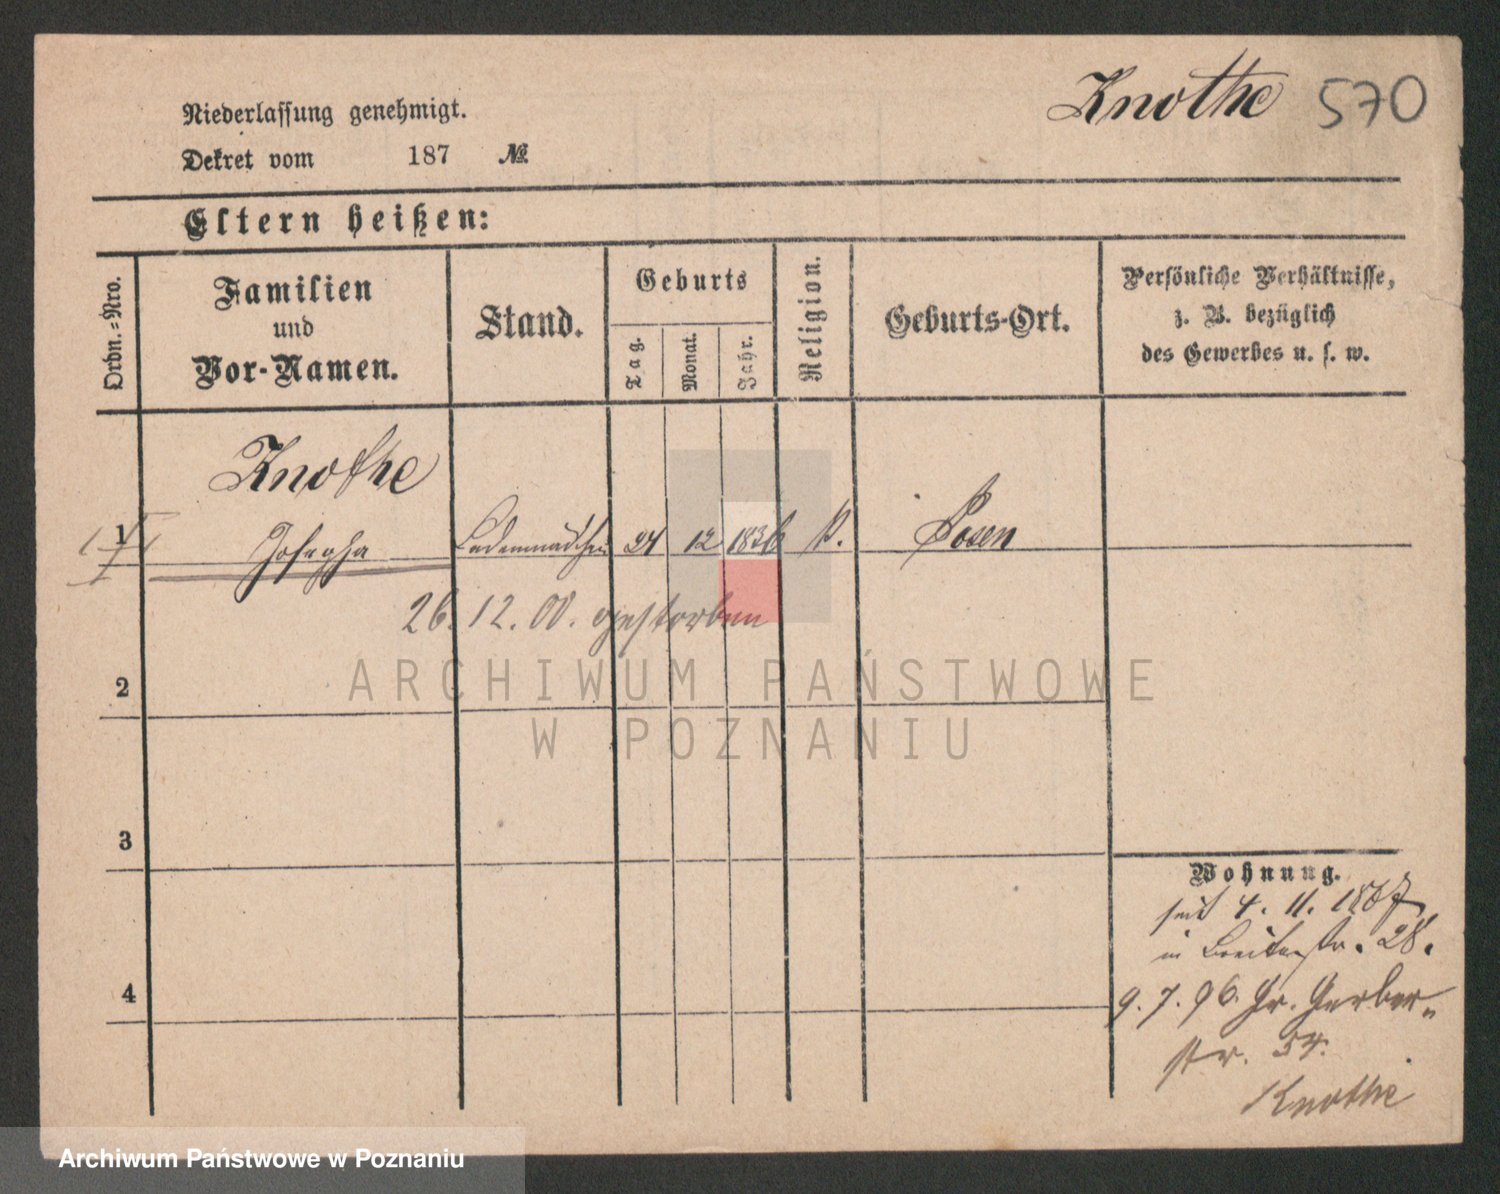 Knothe 570
Niederlassung genehmigt.
Dekret vom 187 №
Eltern heißen:
Ordn.-Nro.
Familien
und
Vor-Namen.
Stand.
Geburts
Tag.
Monat.
Jahr.
Religion.
Geburts-Ort.
Persönliche Verhältnisse,
z. B. bezüglich
des Gewerbes u. s. w.
Knothe
1 Josepha Ladenmädchen 24 12 1836 k. Posen
26. 12. 00. gestorben
2
ARCHIWUM PAŃSTWOWE
W POZNANIU
3
Wohnung.
seit 4. 11. 1887
in Breitestr. 28.
4
9. 7. 96. Gr. Gerber-
str. 54.
Knothe
Archiwum Państwowe w Poznaniu